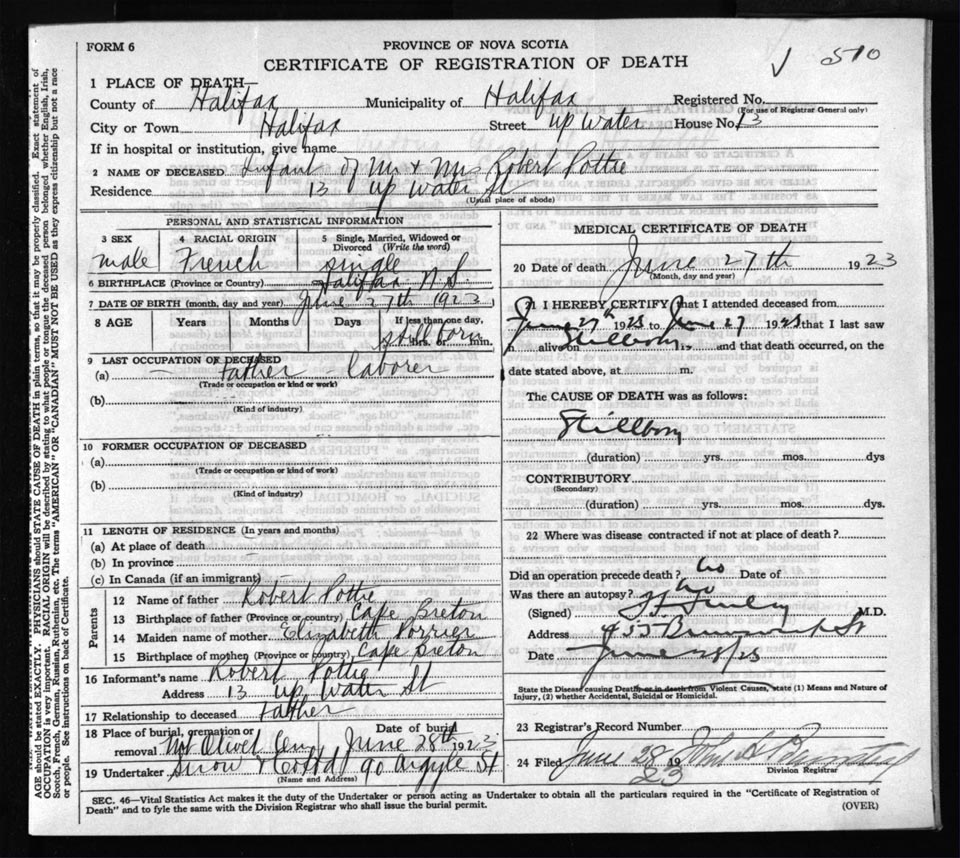 FORM 6
PROVINCE OF NOVA SCOTIA
CERTIFICATE OF REGISTRATION OF DEATH
√ 510
1 PLACE OF DEATH—
County of Halifax Municipality of Halifax Registered No.
(For use of Registrar General only)
City or Town Halifax Street up Water House No. 13
If in hospital or institution, give name
2 NAME OF DECEASED Infant of Mr & Mrs Robert Pottie
Residence 13 up Water St
(Usual place of abode)
PERSONAL AND STATISTICAL INFORMATION
3 SEX 4 RACIAL ORIGIN 5 Single, Married, Widowed or Divorced (Write the word)
male French single
6 BIRTHPLACE (Province or Country) Halifax N.S.
7 DATE OF BIRTH (month, day and year) June 27th 1923
8 AGE Years Months Days If less than one day, hrs. or min.
stillborn
9 LAST OCCUPATION OF DECEASED
(a) — father — laborer
(Trade or occupation or kind or work)
(b)
(Kind of industry)
10 FORMER OCCUPATION OF DECEASED
(a)
(Trade or occupation or kind or work)
(b)
(Kind of industry)
11 LENGTH OF RESIDENCE (In years and months)
(a) At place of death
(b) In province
(c) In Canada (if an immigrant)
Parents
12 Name of father Robert Pottie
13 Birthplace of father (Province or country) Cape Breton
14 Maiden name of mother Elizabeth Porrier
15 Birthplace of mother (Province or country) Cape Breton
16 Informant's name Robert Pottie
Address 13 up Water St
17 Relationship to deceased father
18 Place of burial, cremation or removal Mt Olivet Cem Date of burial June 28th 1923
19 Undertaker Snow & 90 Argyle St
(Name and Address)
MEDICAL CERTIFICATE OF DEATH
20 Date of death June 27th 1923
(Month, day and year)
21 I HEREBY CERTIFY that I attended deceased from
June 27th 1923 to June 27 1923 that I last saw
h alive on Stillborn and that death occurred, on the
date stated above, at m.
The CAUSE OF DEATH was as follows:
Stillborn
(duration) yrs. mos. dys
CONTRIBUTORY
(Secondary)
(duration) yrs. mos. dys.
22 Where was disease contracted if not at place of death?
Did an operation precede death? No Date of
Was there an autopsy? No
(Signed) M.D.
Address 455 Brunswick St
Date June 28/23
State the Disease causing Death, or in death from Violent Causes, state (1) Means and Nature of
Injury, (2) whether Accidental, Suicidal or Homicidal.
23 Registrar's Record Number
24 Filed June 28 19 23 John
Division Registrar
SEC. 46—Vital Statistics Act makes it the duty of the Undertaker or person acting as Undertaker to obtain all the particulars required in the "Certificate of Registration of
Death" and to fyle the same with the Division Registrar who shall issue the burial permit.
(OVER)
AGE should be stated EXACTLY. PHYSICIANS should STATE CAUSE OF DEATH in plain terms, so that it may be properly classified. Exact statement of
OCCUPATION is very important. RACIAL ORIGIN will be described by stating to what people or tongue the deceased person belonged, whether English, Irish,
Scotch, French, German, Russian, Ruthenian, etc. The terms "AMERICAN" OR "CANADIAN" MUST NOT BE USED as they express citizenship but not a race
or people. See instructions on back of Certificate.